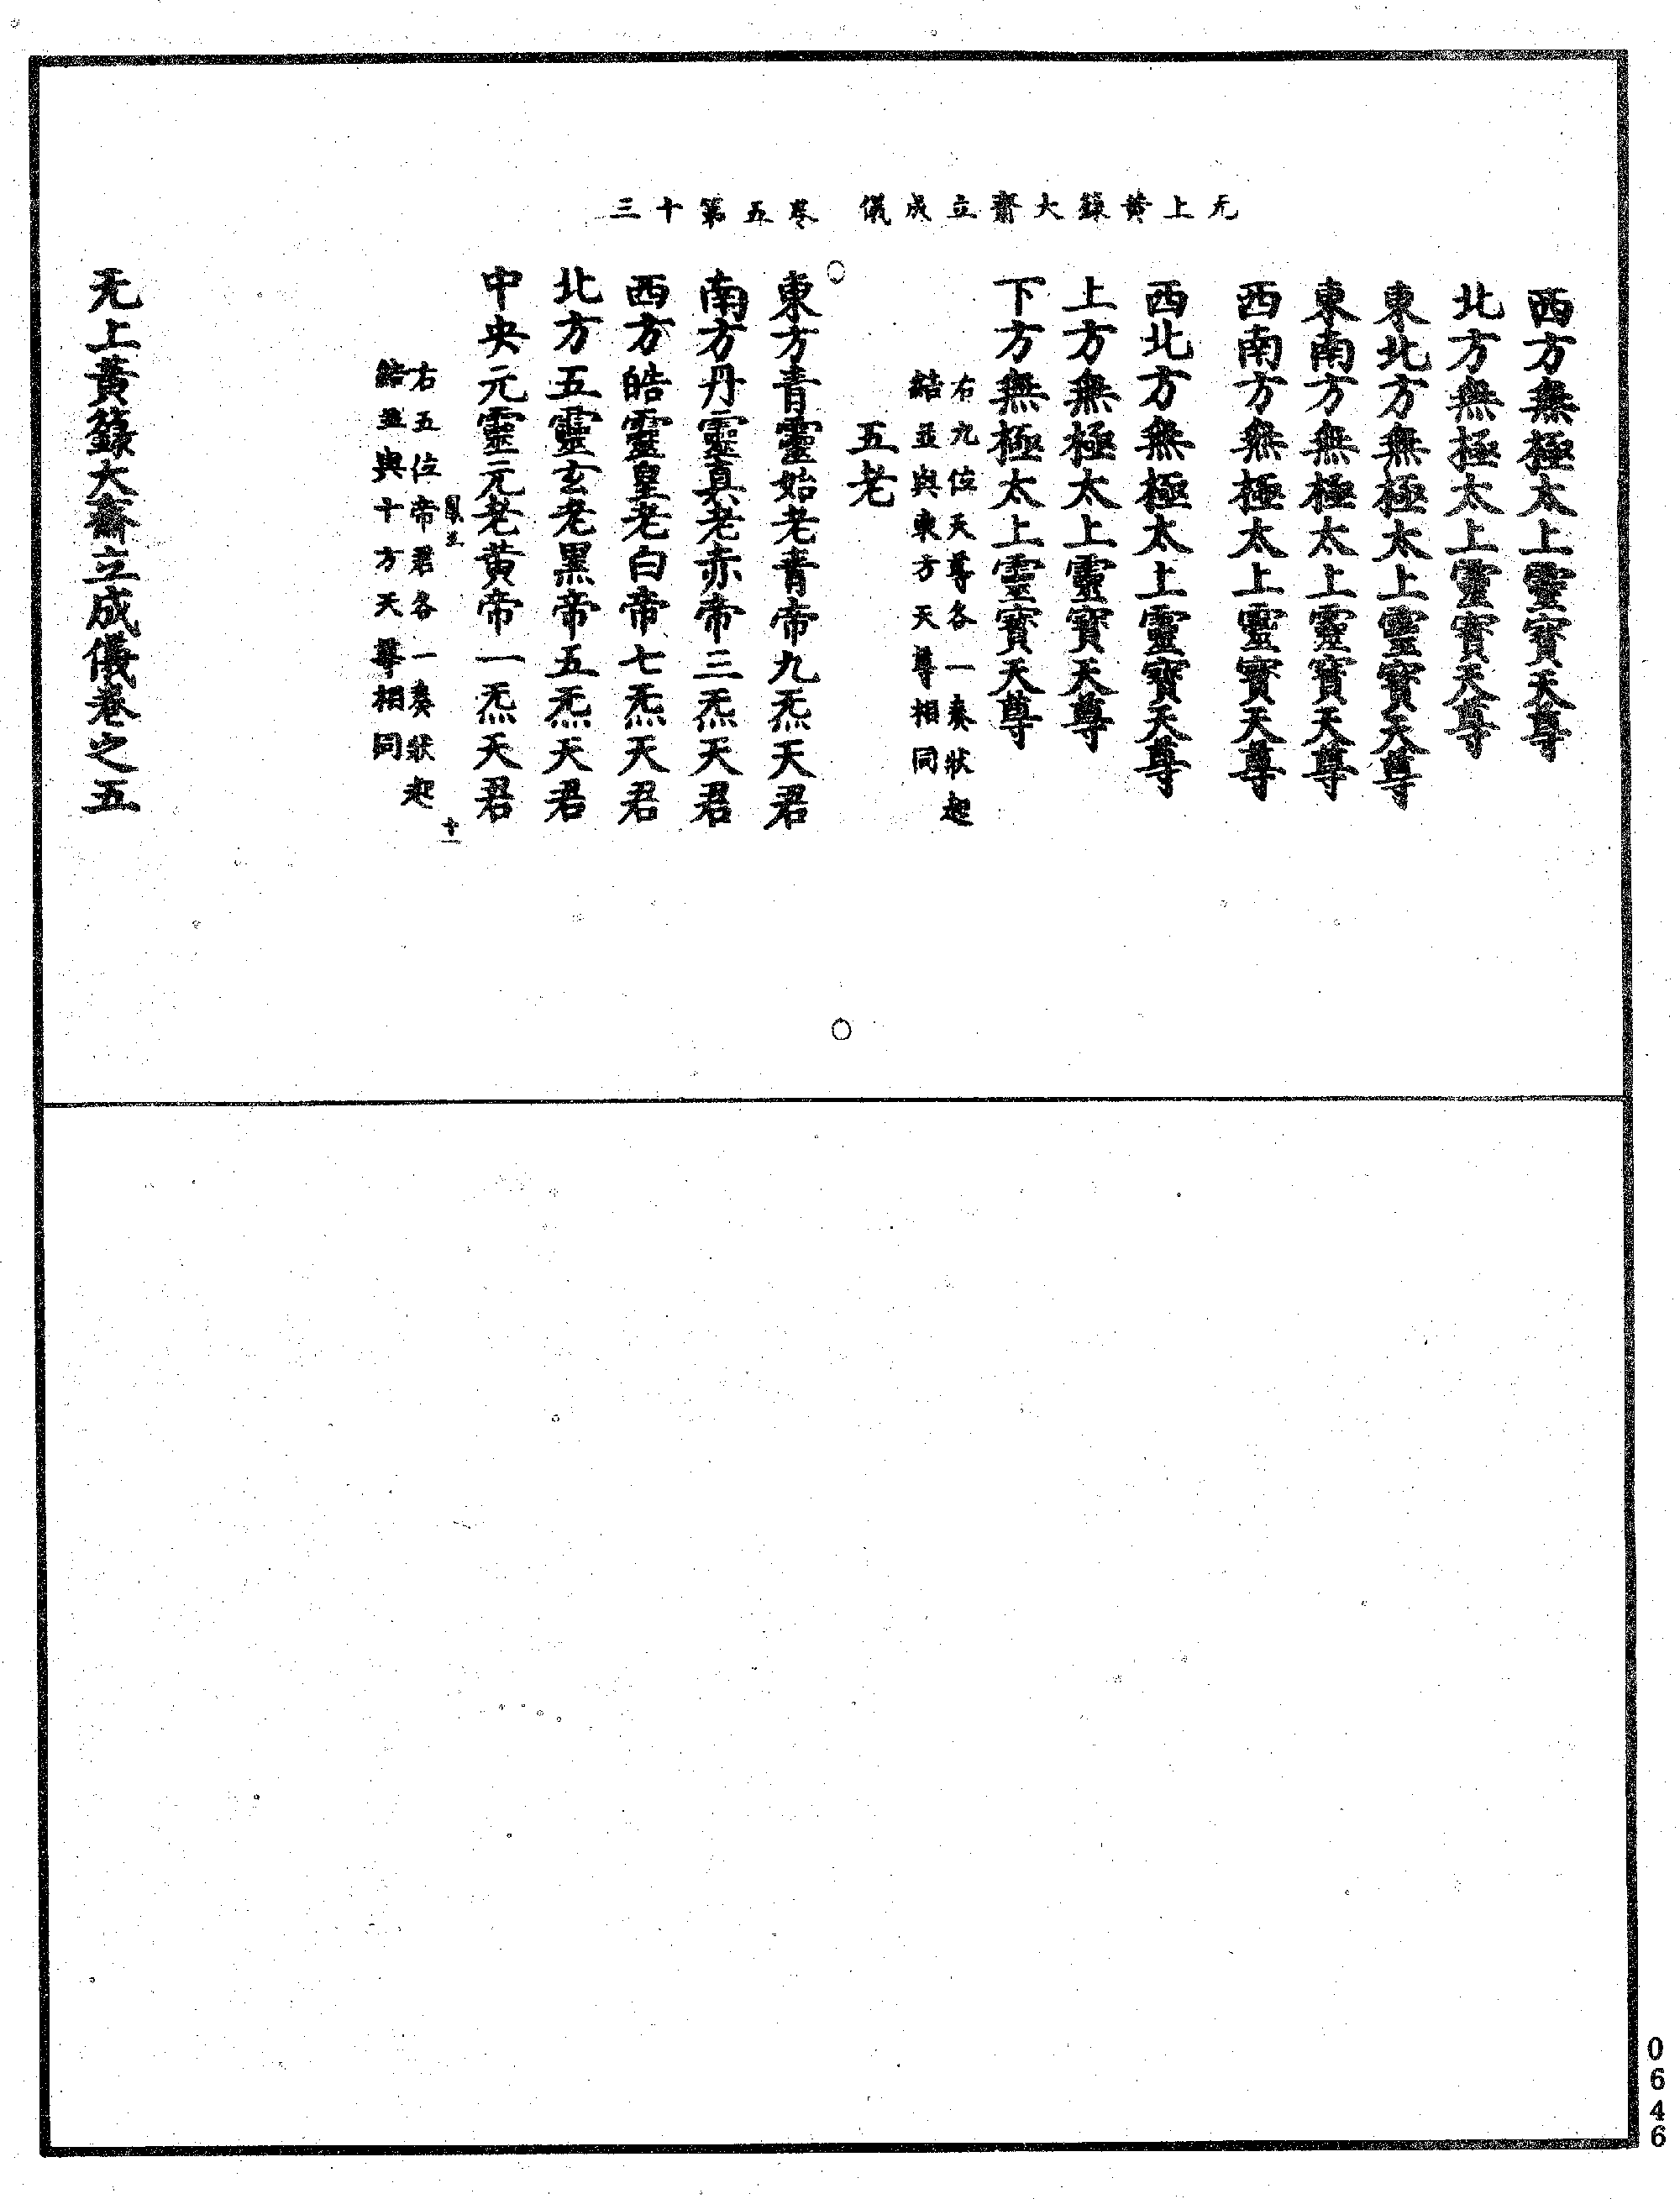 无上黃籙大齋立成儀　卷五第十三
西方無極太上靈寶天尊
北方無極太上靈寶天尊
東北方無極太上靈寶天尊
東南方無極太上靈寶天尊
西南方無極太上靈寶天尊
西北方無極太上靈寶天尊
上方無極太上靈寶天尊
下方無極太上靈寶天尊
右九位天尊各一奏狀起
結並與東方天尊相同
五老
東方青靈始老青帝九炁天君
南方丹靈真老赤帝三炁天君
西方皓靈皇老白帝七炁天君
北方五靈玄老黑帝五炁天君
中央元靈元老黃帝一炁天君
十一
右五位帝君各一奏狀起
結並與十方天尊相同
无上黃籙大齋立成儀卷之五
0646